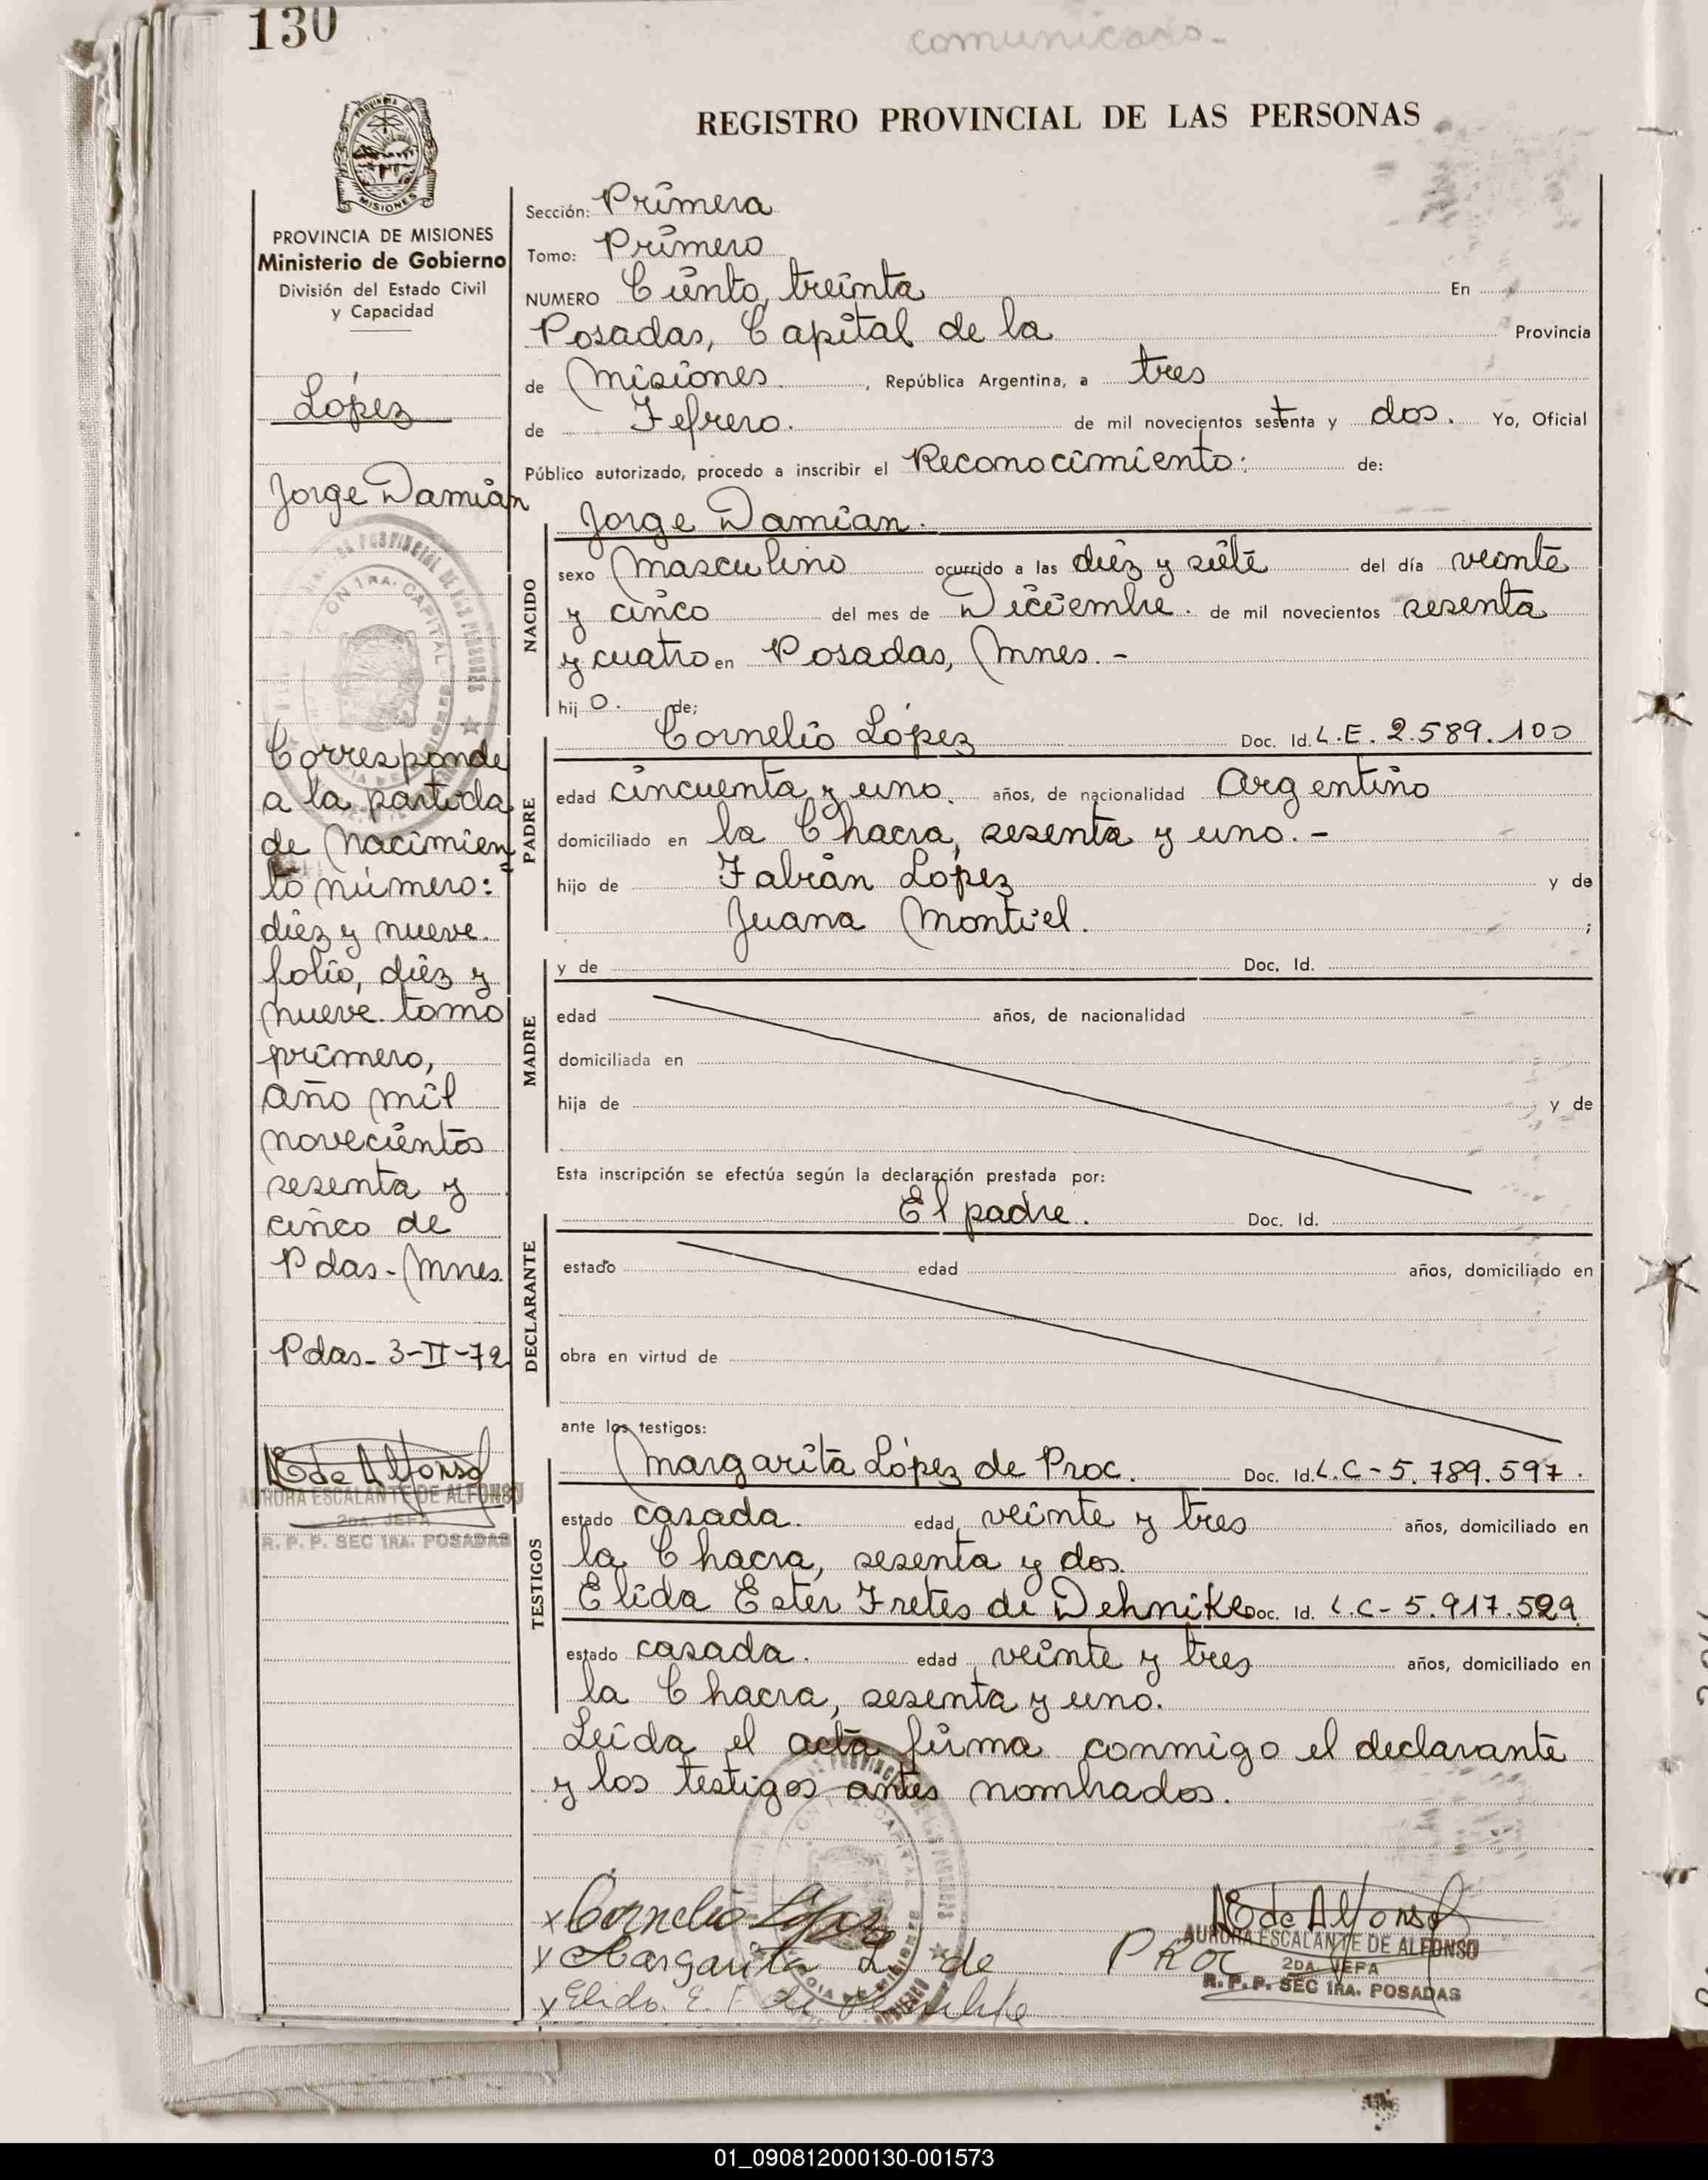 130
comunicado-
REGISTRO PROVINCIAL DE LAS PERSONAS
PROVINCIA DE MISIONES
Ministerio de Gobierno
División del Estado Civil
y Capacidad
López
Jorge Damián
Corresponde
a la partida
de Nacimien
to número:
diéz y nueve.
folio, diéz y
nueve tomo
primero,
año mil
novecientos
sesenta y
cinco de
Pdas-Mnes.
Pdas- 3-II-72
AE de Alfonso
AURORA ESCALANTE DE ALFONSO
2DA. JEFA
R. P. P. SEC 1RA. POSADAS
Sección: Primera
Tomo: Primero
NUMERO Ciento, treinta En
Posadas, Capital de la Provincia
de Misiones , República Argentina, a tres
de Febrero. de mil novecientos setenta y dos. Yo, Oficial
Público autorizado, procedo a inscribir el Reconocimiento: de:
Jorge Damian.
NACIDO
sexo Masculino ocurrido a las diéz y siete del día veinte
y cinco del mes de Diciembre. de mil novecientos sesenta
y cuatro en Posadas, Mnes. -
hij o. de;
PADRE
Cornelio López Doc. Id. L.E. 2.589.100
edad cincuenta y uno. años, de nacionalidad Argentino
domiciliado en la Chacra, sesenta y uno. -
hijo de Fabián López y de
Juana Montiel. ;
MADRE
y de Doc. Id.
edad años, de nacionalidad
domiciliada en
hija de y de
Esta inscripción se efectúa según la declaración prestada por:
DECLARANTE
El padre. Doc. Id.
estado edad años, domiciliado en
obra en virtud de
ante los testigos:
TESTIGOS
Margarita López de Proc. Doc. Id. L.C-5.789.597.
estado casada. edad veinte y tres años, domiciliado en
la Chacra, sesenta y dos.
Elida Ester Fretes de Dehnike Doc. Id. L.C-5.917.529.
estado casada. edad veinte y tres años, domiciliado en
la Chacra, sesenta y uno.
Leída el acta firma conmigo el declarante
y los testigos antes nombrados.
x Cornelio López
x Margarita L de PROC
x Elida. E. F de
AE de Alfonso
AURORA ESCALANTE DE ALFONSO
2DA. JEFA
R. P. P. SEC 1RA. POSADAS
01_090812000130-001573